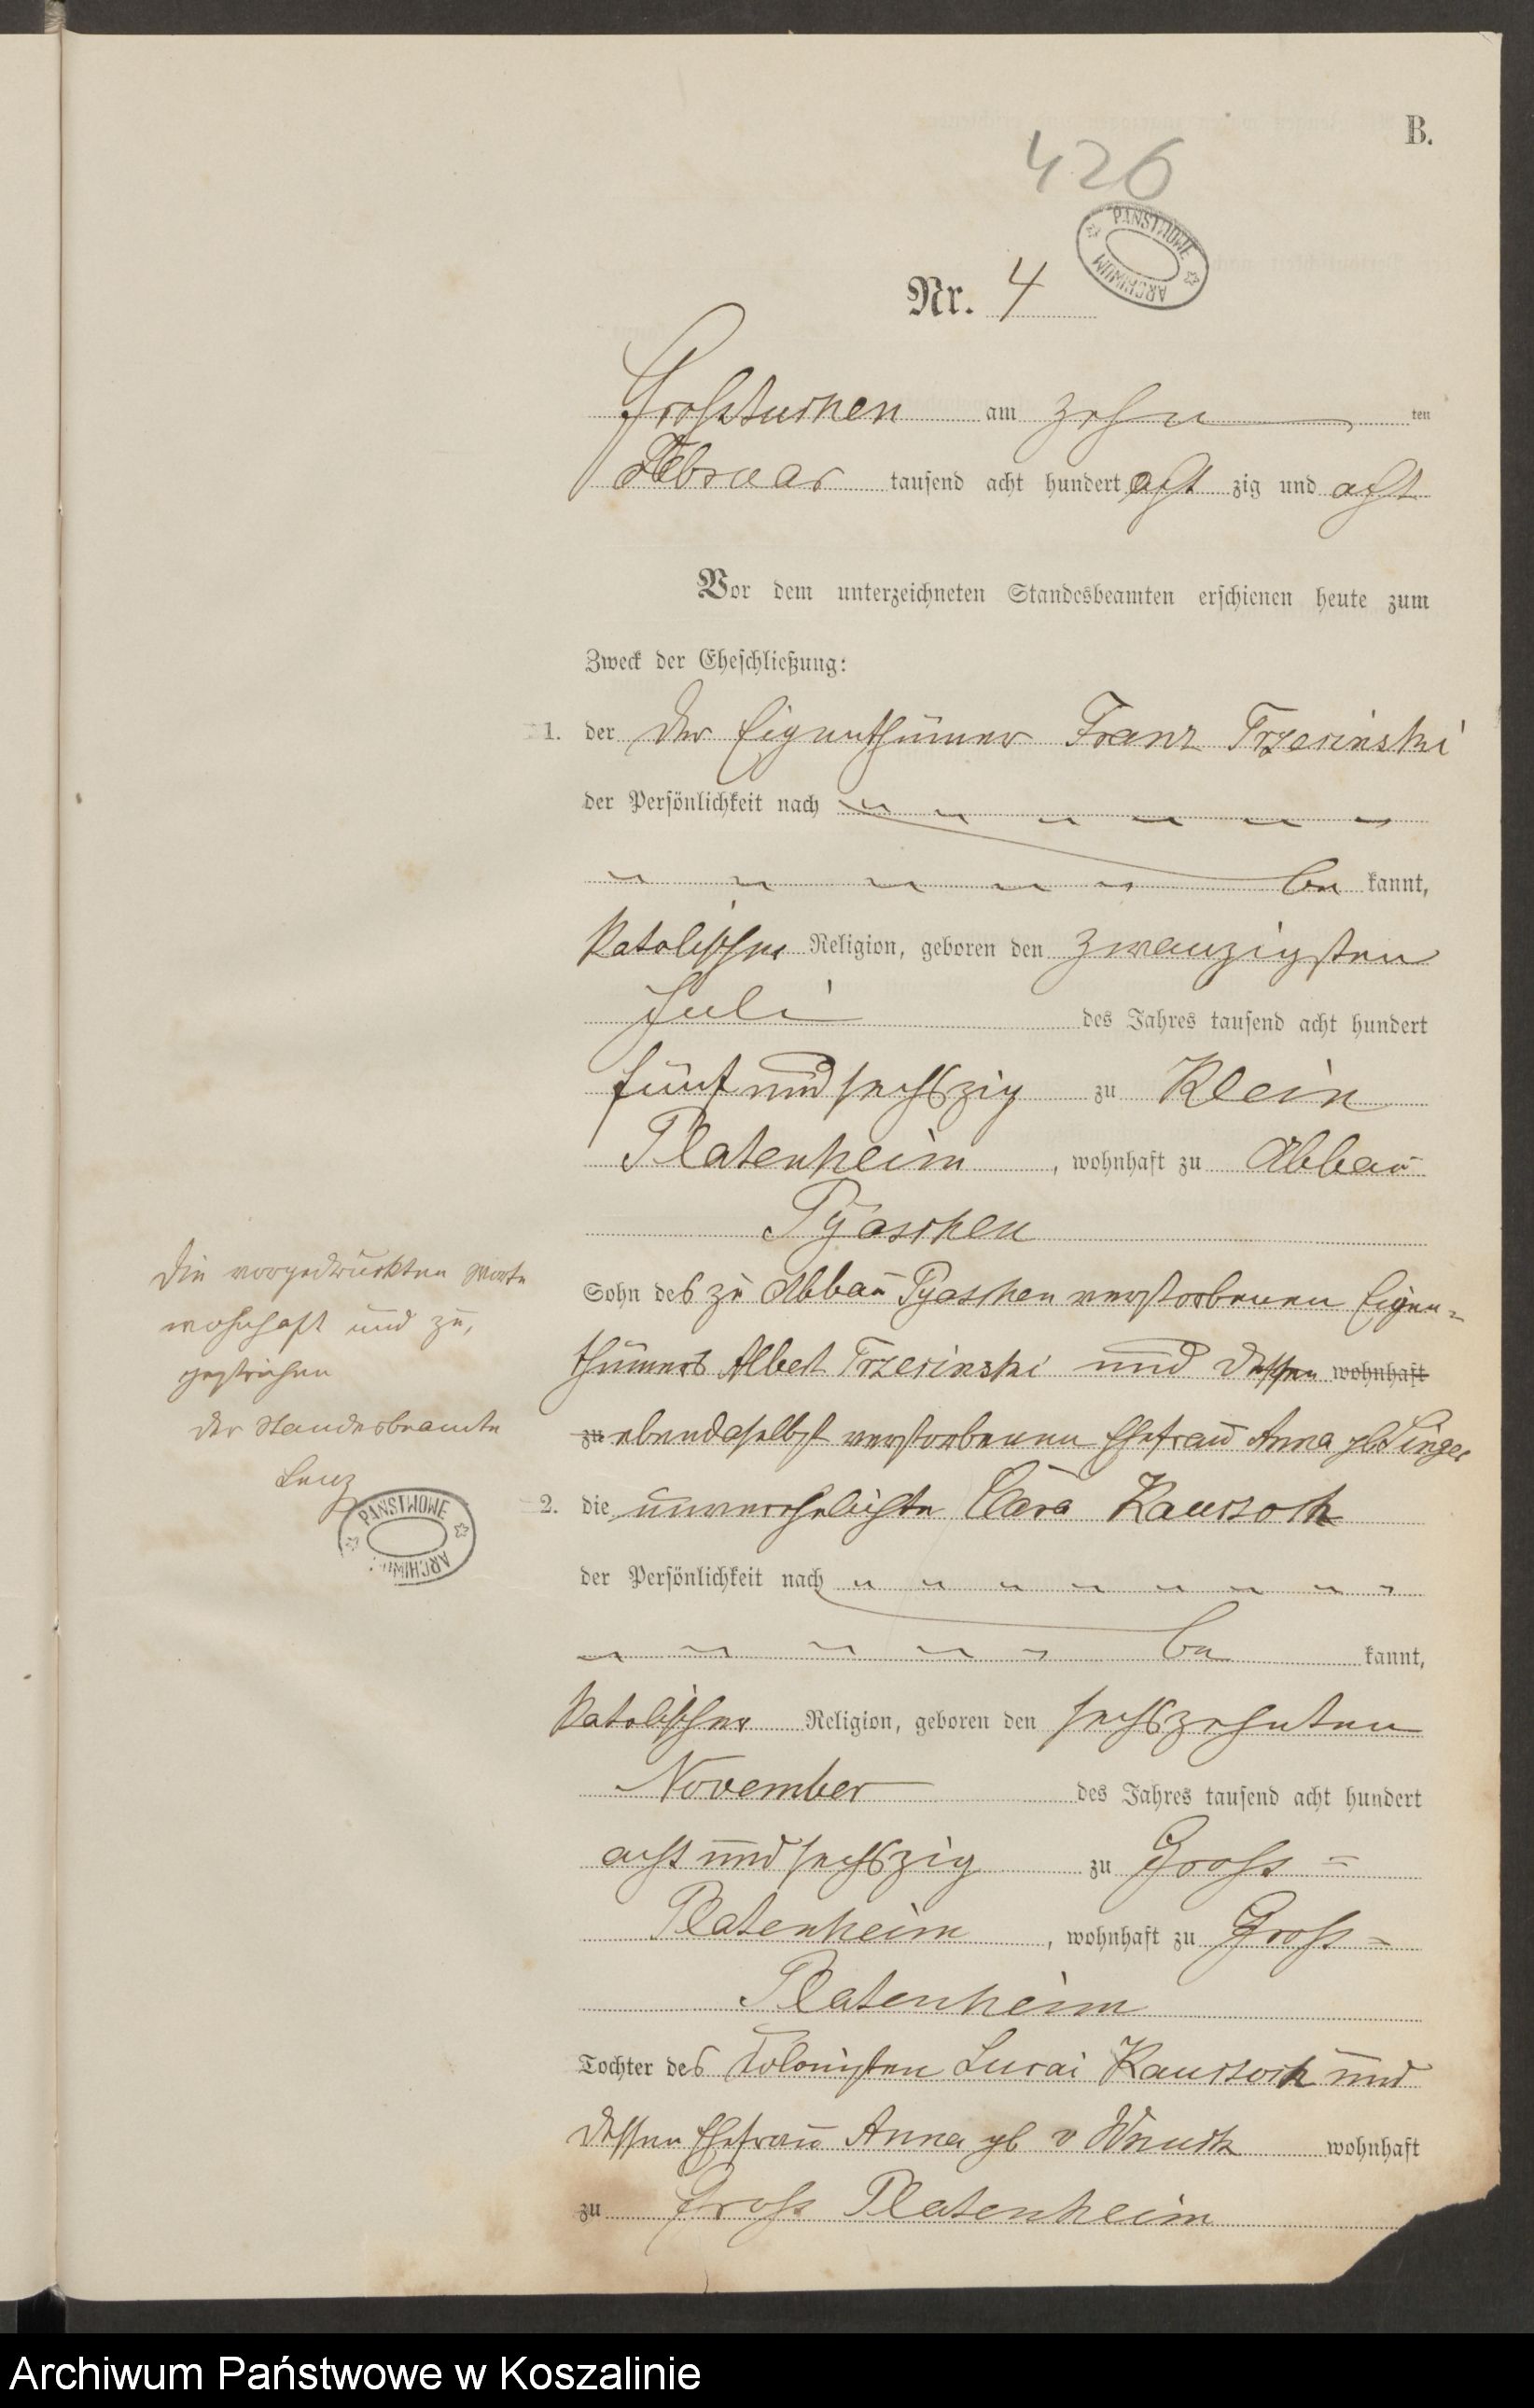 B.
426
PAŃSTWOWE ARCHIWUM
Nr. 4
Grossturnen am zehn ten
Februar tausend acht hundert acht zig und acht
Vor dem unterzeichneten Standesbeamten erschienen heute zum
Zweck der Eheschließung:
1. der der Eigenthümer Franz Trzecinski
der Persönlichkeit nach
be kannt,
katolischer Religion, geboren den zwanzigsten
Juli des Jahres tausend acht hundert
fünf und sechszig zu Klein
Platenheim, wohnhaft zu Abbau
Pyaschen
Sohn des zu Abbau Pyaschen verstorbenen Eigen-
thümers Albert Trzecinski und dessen wohnhaft
zu ebendaselbst verstorbenen Ehefrau Anna gb. Singer
2. die unverehelichte Clara
der Persönlichkeit nach
be kannt,
katolischer Religion, geboren den sechszehnten
November des Jahres tausend acht hundert
acht und sechszig zu Gross-
Platenheim, wohnhaft zu Gross-
Platenheim
Tochter des Kolonisten und
dessen Ehefrau Anna gb v wohnhaft
zu Gross Platenheim
Die vorgedruckten Worte
wohnhaft und zu,
gestrichen
Der Standesbeamte
Lenz
PAŃSTWOWE ARCHIWUM
Archiwum Państwowe w Koszalinie